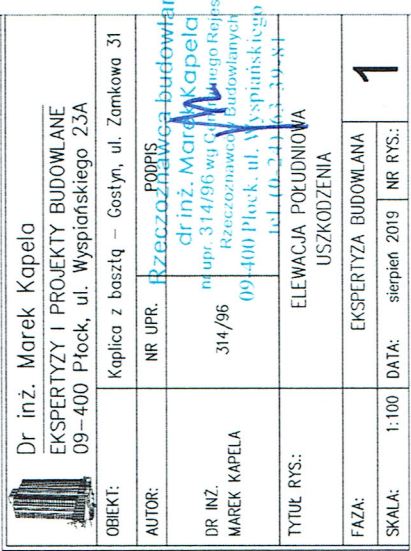 Dr inż. Marek Kapela
EKSPERTYZY I PROJEKTY BUDOWLANE
09-400 Płock, ul. Wyspiańskiego 23A
OBIEKT: Kaplica z basztą – Gostyn, ul. Zamkowa 31
AUTOR: NR UPR. PODPIS
DR INŻ.
MAREK KAPELA
314/96
Rzeczoznawca budowlan
dr inż. Marek Kapela
nr upr. 314/96 wg nego Rejes
Rzeczoznawców Budowlanych
09-400 Płock, ul. Wyspiańskiego
tel. (0-24) 63-39-81
TYTUŁ RYS.: ELEWACJA POŁUDNIOWA
USZKODZENIA
FAZA: EKSPERTYZA BUDOWLANA
SKALA: 1:100 DATA: sierpień 2019 NR RYS.: 1